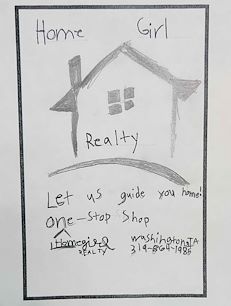 Home Girl
Realty
Let us guide you home!
one-stop Shop
Homegirl
REALTY
washington IA
319-864-1985